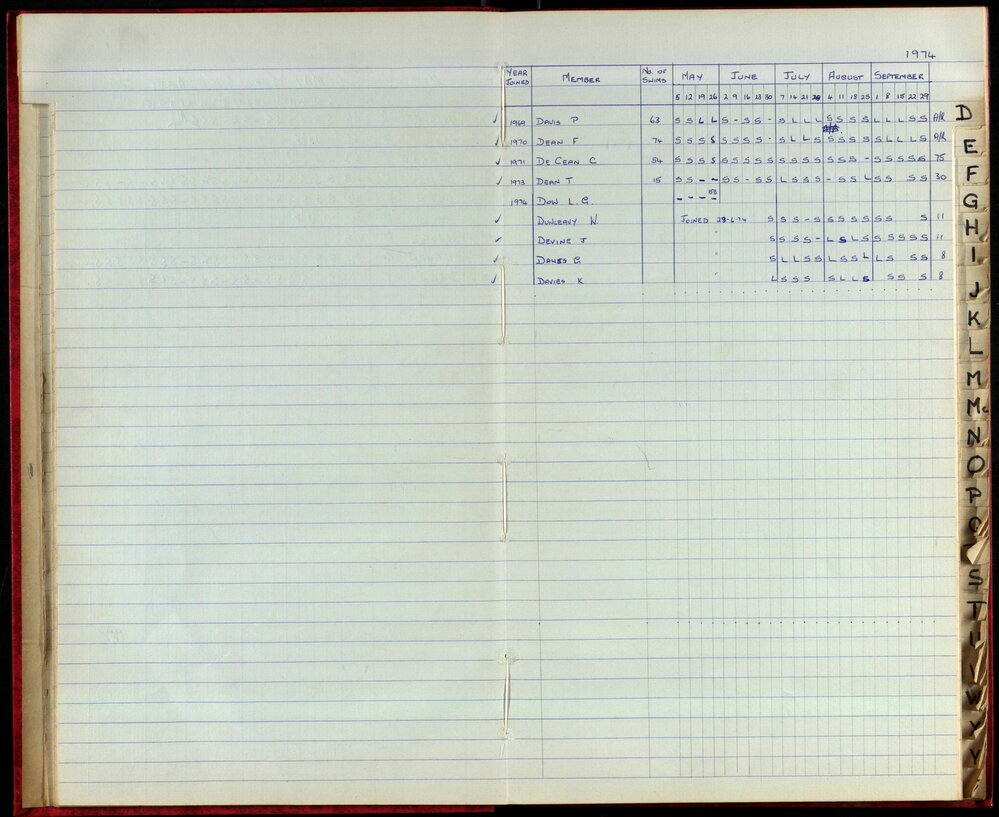 1974
YEAR JOINED MEMBER No. OF SWIMS MAY JUNE JULY AUGUST SEPTEMBER
5 12 19 26 2 9 16 23 30 7 14 21 28 4 11 18 25 1 8 15 22 29
✓ 1969 DAVIS P 63 S S L L S - S S - S L L L S S S S L L L S S A/R
✓ 1970 DEAN F 74 S S S S S S S S - S L L S S S S S S L L L L A/R
✓ 1971 DE CEAN C 54 S S S S S S S S S S S S S S S S - S S S S S 75
✓ 1973 DEAN T 15 S S - - S S - S S L S S S - S S L S S S S 30
1974 DOW L. G. - - - -
✓ DUNLEAVY N. JOINED 28-6-74 S S S - S S S S S S S S 11
✓ DEVINE J S S S S - L S L S S S S S S 11
✓ DAWES G S L L S S L S S L L S S S 8
✓ DAVIES K L S S S S L L S S S S 8
D
E
F
G
H
I
J
K
L
M
Mc
N
O
P
Q
S
T
U
W
X
Y